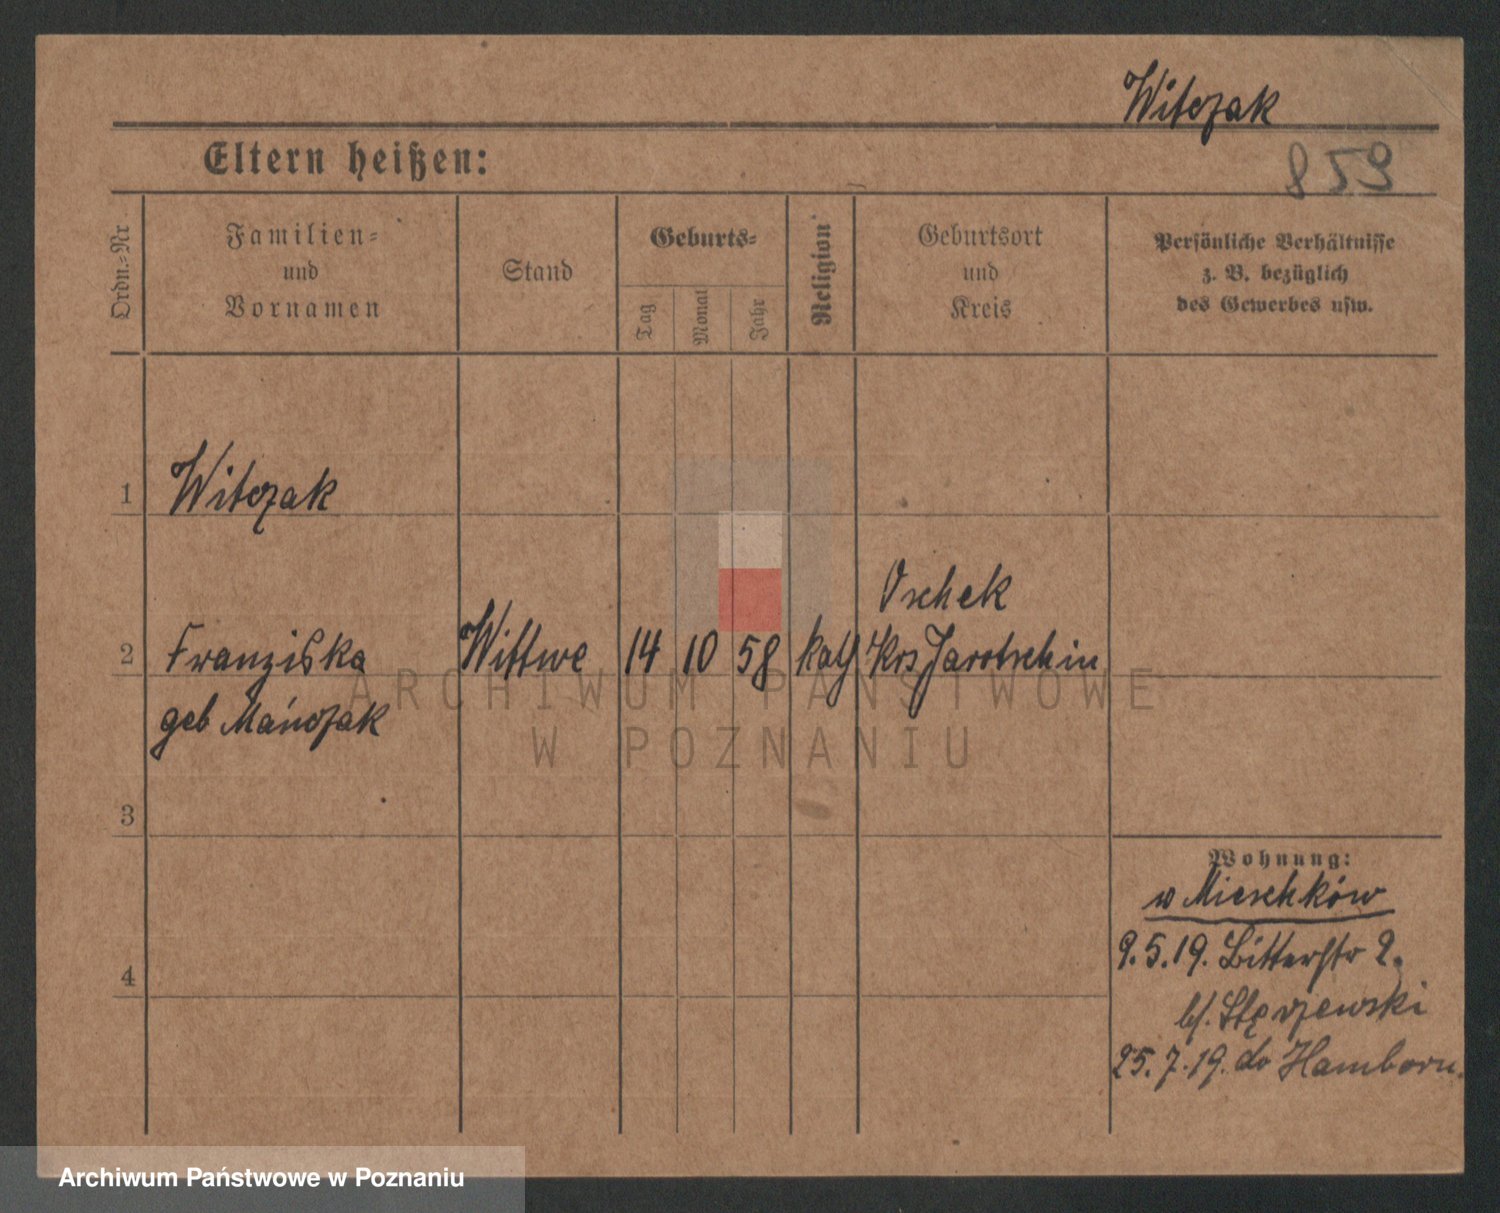 Witczak
Eltern heißen:
859
Ordn.-Nr
Familien-
und
Vornamen
Stand
Geburts-
Tag
Monat
Jahr
Religion
Geburtsort
und
Kreis
Persönliche Verhältnisse
z. B. bezüglich
des Gewerbes usw.
1 Witczak
Oschek
2 Franziska Wittwe 14 10 58 kath Krs Jarotschin
geb Mańczak
3
Wohnung:
w Mieschków
9.5.19. Bitterstr 2.
4
b/. Stęrzewski
25.7.19. do Hamborn.
ARCHIWUM PAŃSTWOWE
W POZNANIU
Archiwum Państwowe w Poznaniu